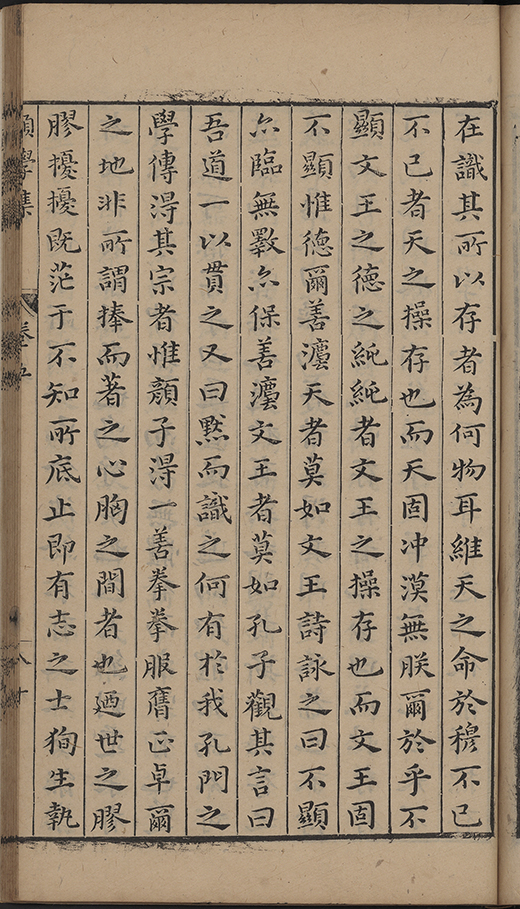 在識其所以存者為何物耳維天之命於穆不已
不已者天之操存也而天固冲漠無朕爾於乎不
顯文王之德之純純者文王之操存也而文王固
不顯惟德爾善灋天者莫如文王詩詠之曰不顯
亦臨無斁亦保善灋文王者莫如孔子觀其言曰
吾道一以貫之又曰默而識之何有於我孔門之
學傳淂其宗者惟顏子淂一善拳拳服膺正卓爾
之地非所謂捧而著之心胸之間者也廼世之膠
膠擾擾既茫于不知所底止即有志之士狥生執
學集 卷五 八十